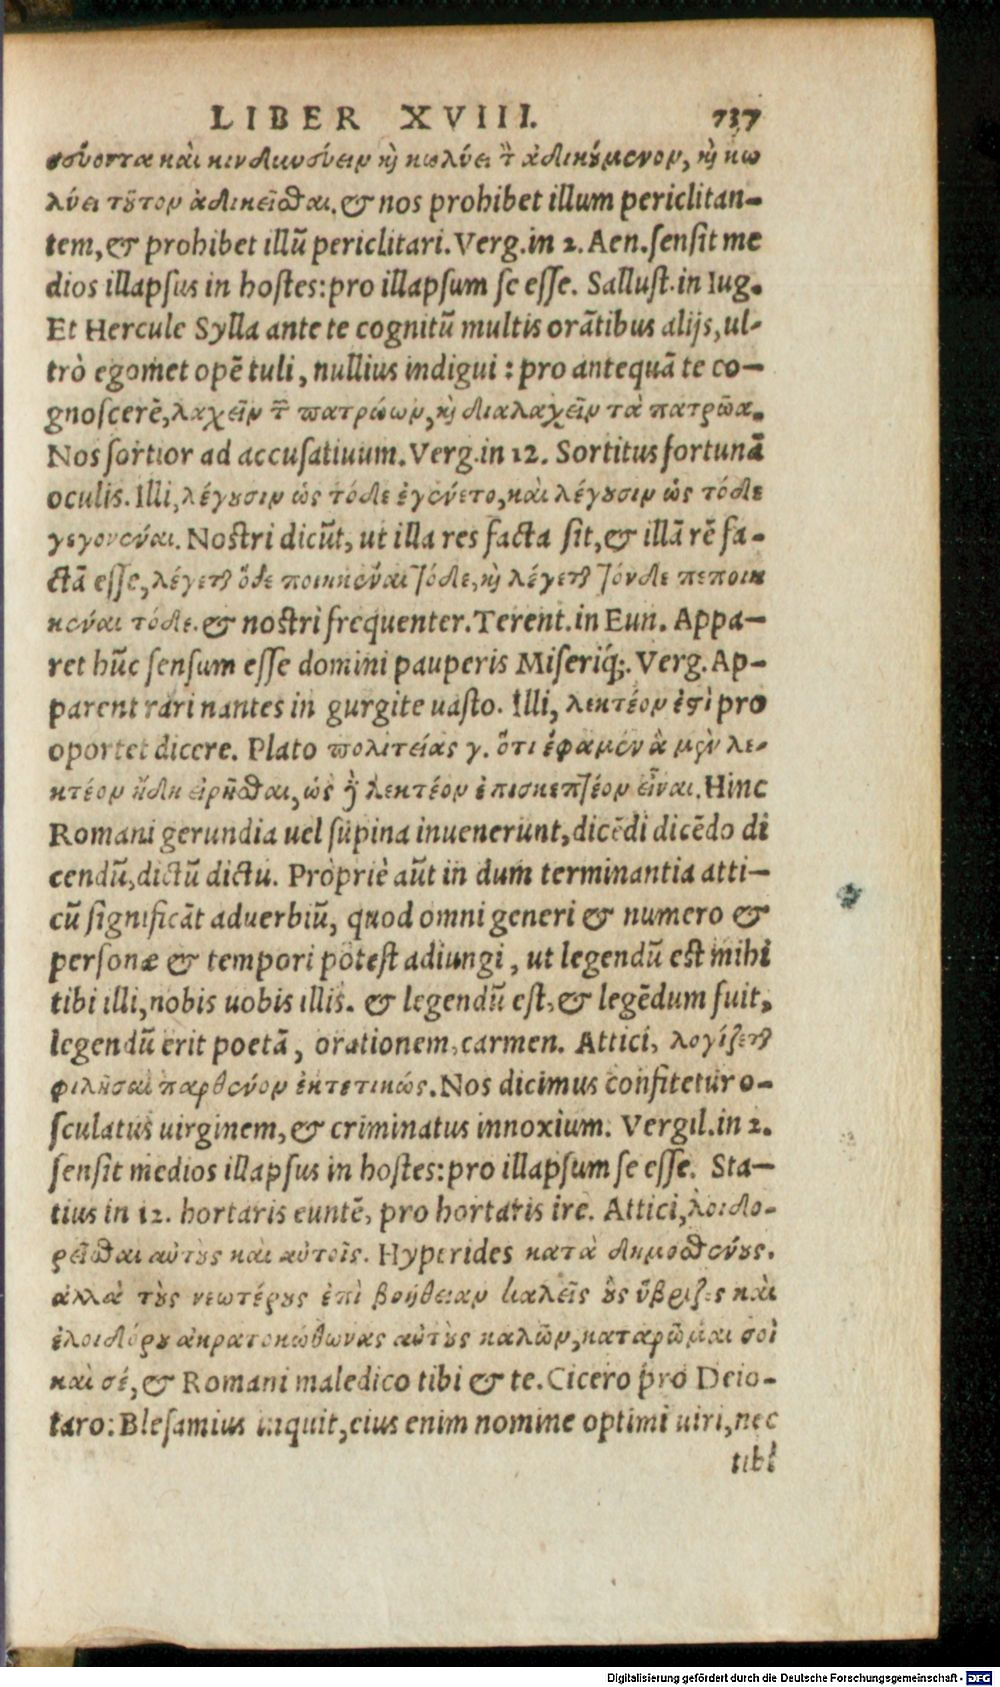 LIBER XVIII. 737
σεύοντα καὶ κινδιωεύειν κὴ κωλύει τ̃ ἀδικούμενον, κὴ κω
λύει τοῦτον ἀδικεῖσθαι. & nos prohibet illum periclitan-
tem, & prohibet illũ periclitari. Verg. in 2. Aen. sensit me
dios illapsus in hostes: pro illapsum se esse. Sallust. in Iug.
Et Hercule Sylla ante te cognitũ multis orãtibus alijs, ul-
trò egomet opẽ tuli, nullius indigui : pro antequã te co-
gnoscerẽ, λαχεῖν τ̃ πατρώων, κὴ διαλαχεῖν τὰ πατρῶα.
Nos sortior ad accusatiuum. Verg. in 12. Sortitus fortunã
oculis. Illi, λέγουσιν ὡς τόδε ἐγένετο, καὶ λέγουσιν ὡς τόδε
γεγονέναι. Nostri dicũt, ut illa res facta sit, & illã rẽ fa-
ctã esse, λέγεται ὅδε ποιηκέναι τόδε, κὴ λέγεται τόνδε πεποιη
κέναι τόδε. & nostri frequenter. Terent. in Eun. Appa-
ret hũc sensum esse domini pauperis Miseriq́;. Verg. Ap-
parent rari nantes in gurgite uasto. Illi, λεκτέον ἐστὶ pro
oportet dicere. Plato πολιτείας γ. ὅτι ἐφαμὲν ἃ μὲν λε-
κτέον ἤδη εἰρῆσθαι, ὡς ἢ λεκτέον ἐπισκεπτέον εἶναι. Hinc
Romani gerundia uel supina inuenerunt, dicẽdi dicẽdo di
cendũ, dictũ dictu. Propriè aũt in dum terminantia atti-
cũ significãt aduerbiũ, quod omni generi & numero &
personæ & tempori potest adiungi, ut legendũ est mihi
tibi illi, nobis uobis illis. & legendũ est, & legẽdum fuit,
legendũ erit poetã, orationem, carmen. Attici, λογίζεται
φιλῆσαι παρθένον ἐκτετικώς. Nos dicimus confitetur o-
sculatus uirginem, & criminatus innoxium. Vergil. in 2.
sensit medios illapsus in hostes: pro illapsum se esse. Sta-
tius in 12. hortaris euntẽ, pro hortaris ire. Attici, λοιδο-
ρεῖσθαι αὐτοὺς καὶ αὐτοῖς. Hyperides κατὰ δημοσθένους.
ἀλλὰ τοὺς νεωτέρους ἐπὶ βοήθειαν καλεῖς οὓς ὕβριζες καὶ
ἐλοιδόρου ἀκρατοκώθωνας αὐτοὺς καλῶν, καταρῶμαι σοὶ
καὶ σέ, & Romani maledico tibi & te. Cicero pro Deio-
taro: Blesamius inquit, eius enim nomine optimi uiri, nec
tibi
Digitalisierung gefördert durch die Deutsche Forschungsgemeinschaft - DFG